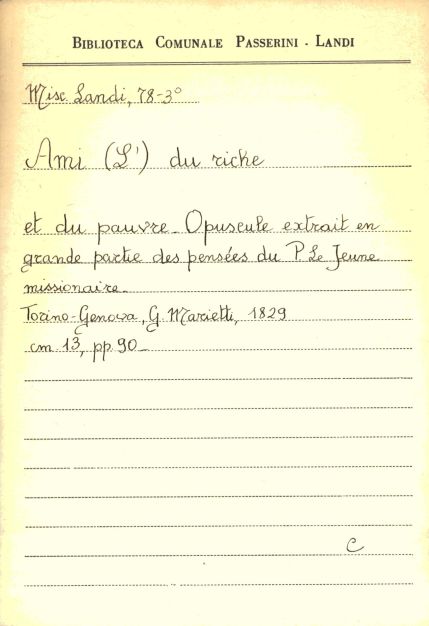 BIBLIOTECA COMUNALE PASSERINI - LANDI
Misc Landi, 78-3°
Ami (L') du riche
et du pauvre_ Opuscule extrait en
grande partie des pensées du P Le Jeune
missionaire_
Torino-Genova, G. Marietti, 1829
cm 13, pp 90_
C